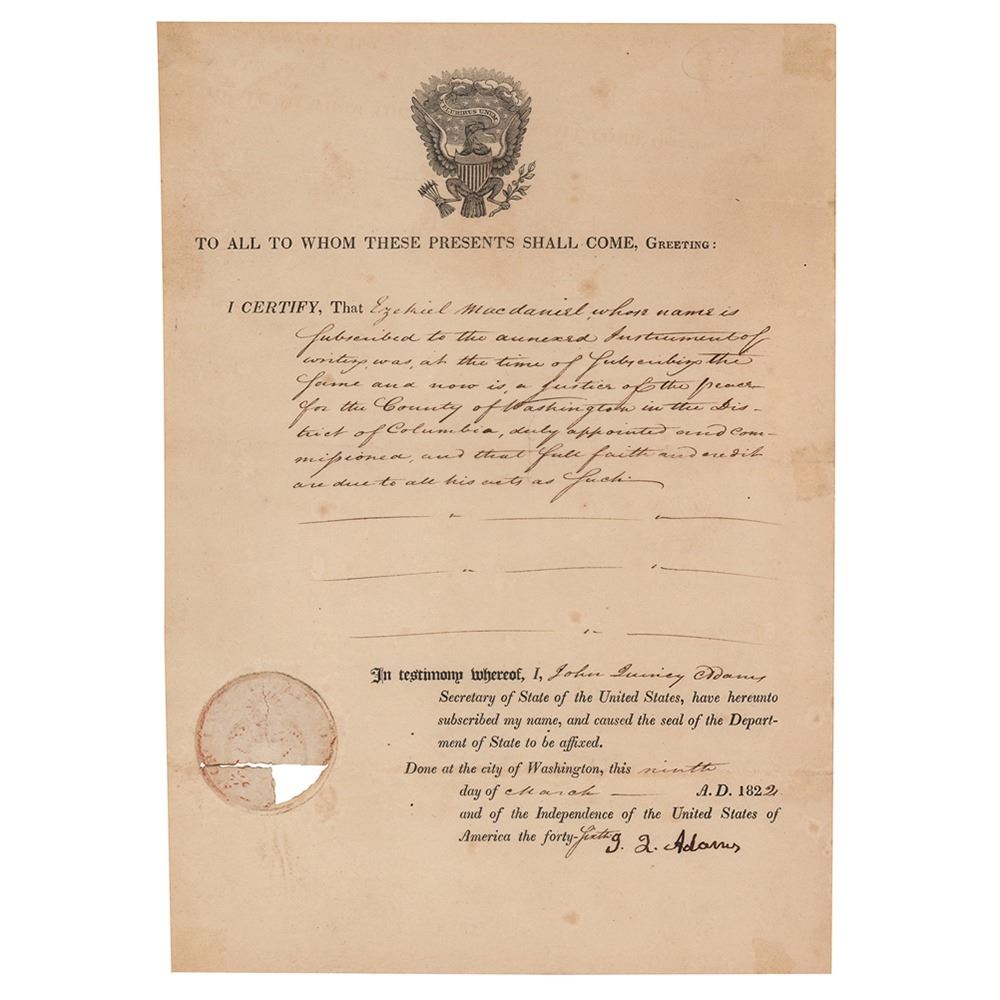 E PLURIBUS UNUM
TO ALL TO WHOM THESE PRESENTS SHALL COME, GREETING:
I CERTIFY, That Ezekiel Macdaniel, whose name is
Subscribed to the annexed Instrument of
writing, was, at the time of Subscribing the
Same and now is, a Justice of the peace
for the County of Washington in the Dis-
trict of Columbia, duly appointed and com-
missioned, and that full faith and credit
are due to all his acts as Such.
In testimony whereof, I, John Quincy Adams
Secretary of State of the United States, have hereunto
subscribed my name, and caused the seal of the Depart-
ment of State to be affixed.
Done at the city of Washington, this ninth
day of March A. D. 1822
and of the Independence of the United States of
America the forty-Sixth
J. Q. Adams